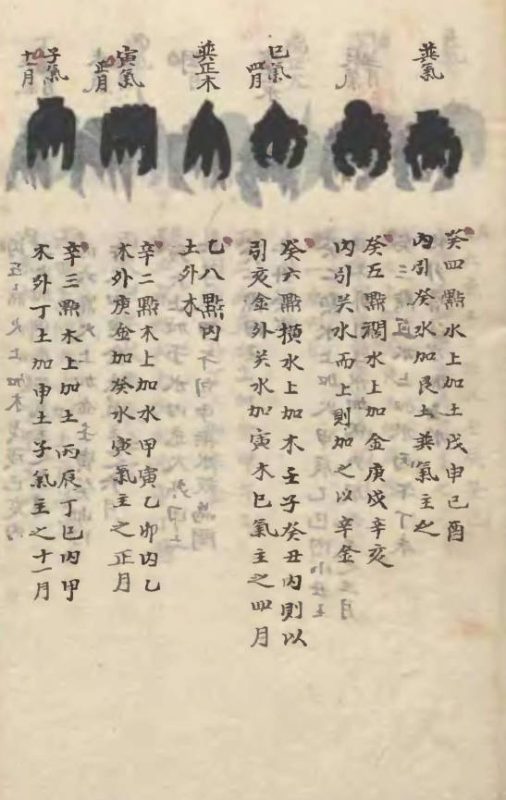 巽氣
巳氣
四月
巽正木
寅氣
正月
子氣
十一月
癸四點水上加土戊申己酉
內引癸水加艮土巽氣主之
癸五點潤水上加金庚戌辛亥
內引癸水而上則加之以辛金
癸六點損水上加木壬子癸丑內則以
引亥金外癸水加寅木巳氣主之四月
乙八點內
土外木
辛二點木上加水甲寅乙卯內乙
木外庚金加癸水寅氣主之正月
辛三點木上加土丙辰丁巳內甲
木外丁土加申土子氣主之十一月